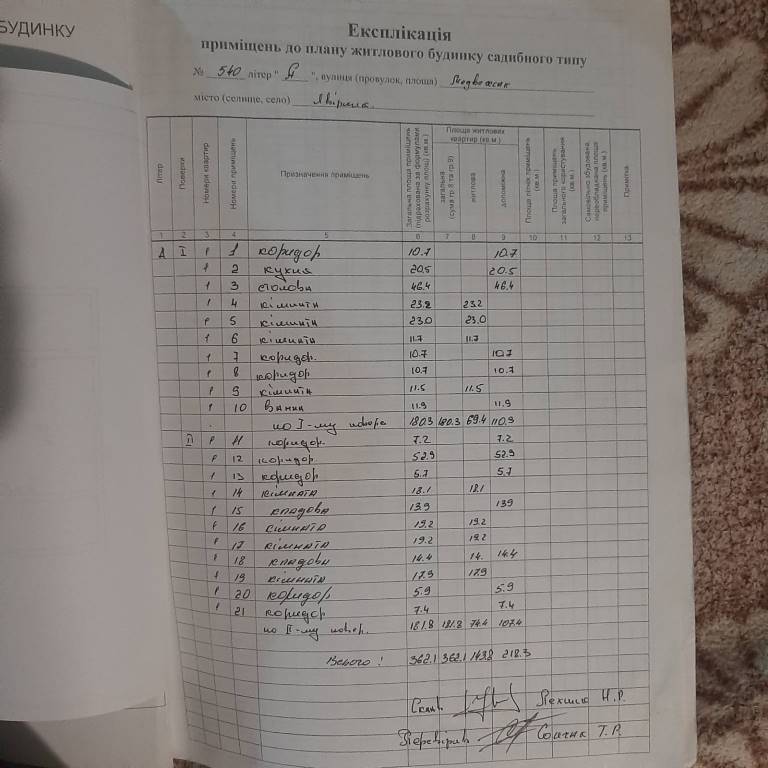 БУДИНКУ
Експлікація
приміщень до плану житлового будинку садибного типу
№ 540 літер " А ", вулиця (провулок, площа)
місто (селище, село)
Літер
Поверхи
Номери квартир
Номери приміщень
Призначення приміщень
Загальна площа приміщень (підрахована за формулами розрахунку площ) (кв.м.)
Площа житлових квартир (кв.м.)
загальна (сума гр.8 та гр.9)
житлова
допоміжна
Площа літніх приміщень (кв.м.)
Площа приміщень загального користування (кв.м.)
Самовільно збудована, переобладнана площа приміщень (кв.м.)
Примітка
1 2 3 4 5 6 7 8 9 10 11 12 13
А I 1 1 коридор 10.7 10.7
1 2 кухня 20.5 20.5
1 3 столова 46.4 46.4
1 4 кімната 23.2 23.2
1 5 кімната 23.0 23.0
1 6 кімната 11.7 11.7
1 7 коридор. 10.7 10.7
1 8 коридор 10.7 10.7
1 9 кімната 11.5 11.5
1 10 ванна 11.9 11.9
по I-му повер 180.3 180.3 69.4 110.9
II 1 11 коридор. 7.2 7.2
1 12 коридор. 52.9 52.9
1 13 коридор 5.7 5.7
1 14 кімната 18.1 18.1
1 15 кладова 13.9 13.9
1 16 кімната 19.2 19.2
1 17 кімната 19.2 19.2
1 18 кладова 14.4 14. 14.4
1 19 кімната 17.9 17.9
1 20 коридор 5.9 5.9
1 21 коридор 7.4 7.4
по II-му повер. 181.8 181.8 74.4 107.4
Всього: 362.1 362.1 143.8 218.3
Склав Н.Р.
Перевірив Т.Р.